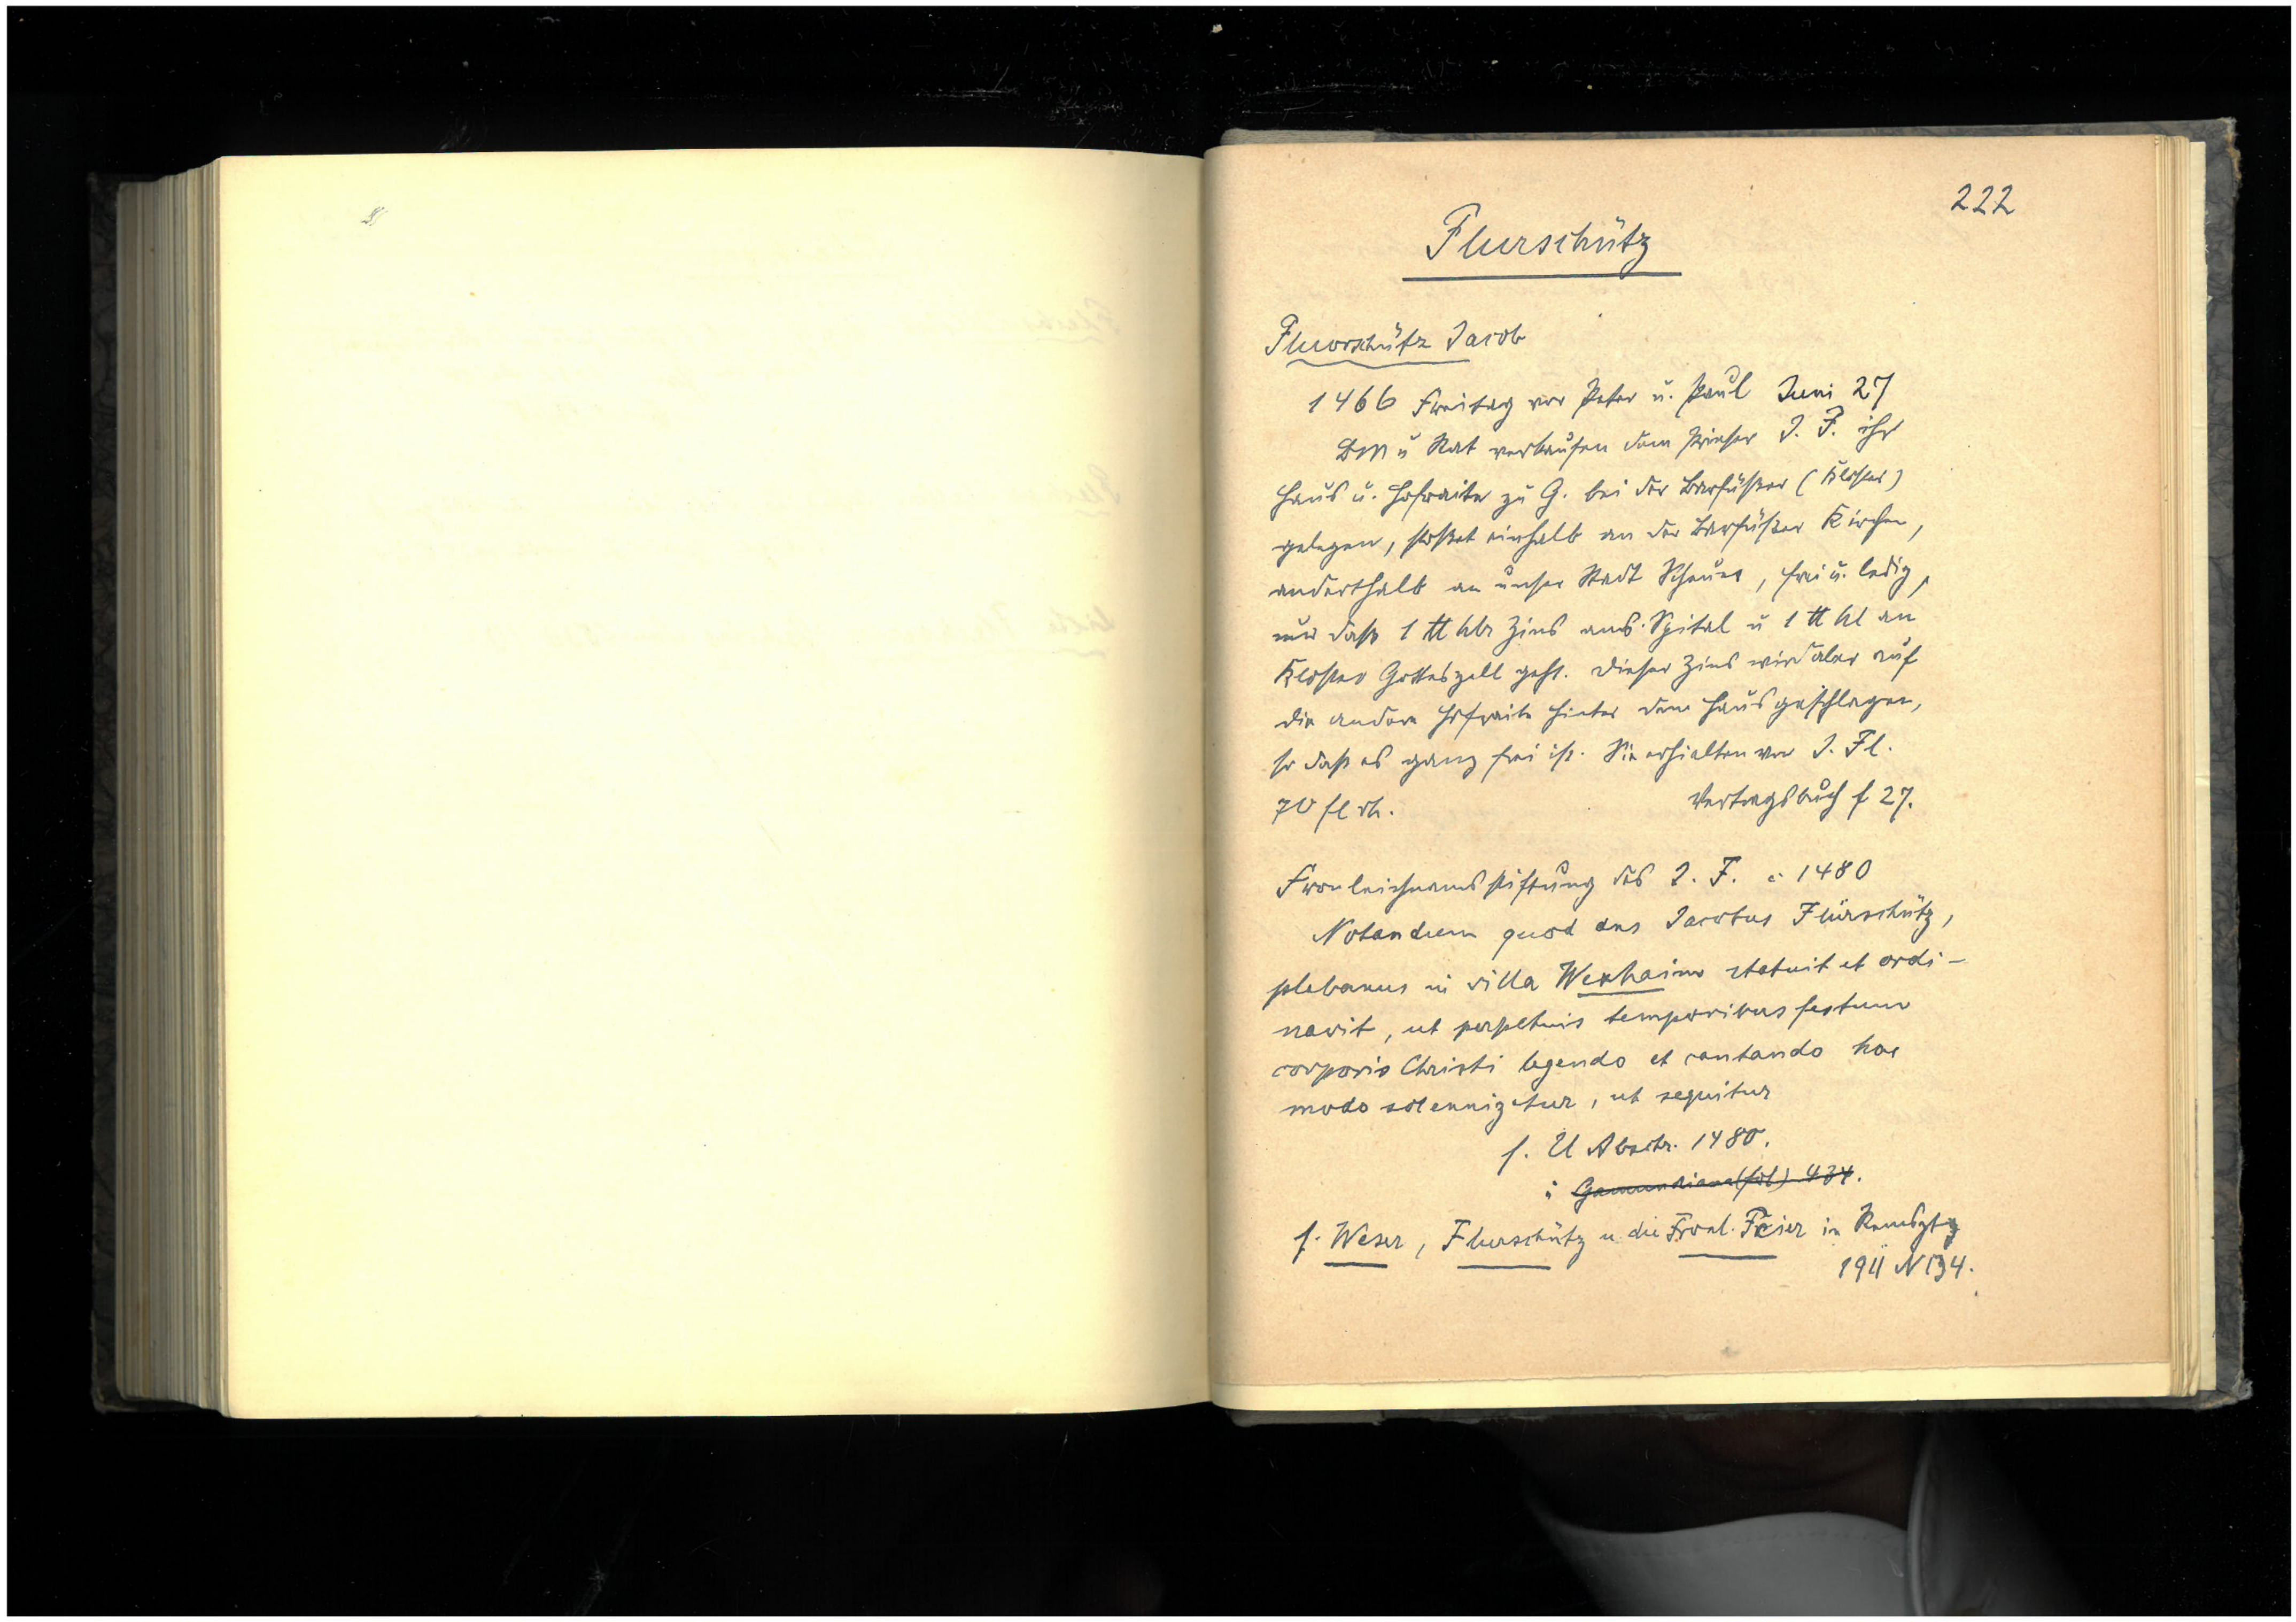 222
Flurschütz
Fluorschütz Jacob
1466 Freitag vor Peter u. Paul Juni 27
BM u Rat verkaufen dem Priester J. F. ihr
Haus u. Hofraite zu G. bei der Barfüßer (Kloster)
gelegen, stoßet einhalb an der Barfüßer Kirchen,
anderthalb an unser Stadt Scheuer, frei u. ledig,
nur daß 1 ℔ hlr Zins ans Spital u 1 ℔ hl an
Kloster Gotteszell geht. Dieser Zins wird aber auf
die andere Hofraite hinter dem Haus geschlagen,
so daß es ganz frei ist. Sie erhielten von J. Fl.
70 fl rh. Vertragsbuch f 27.
Fronleichnamsstiftung des J. F. c 1480
Notandum quod dns Jacobus Flürschütz,
plebanus in villa Wexhaim statuit et ordi-
navit, ut perpetuis temporibus festum
corporis Christi legendo et cantando hoc
modo solennizetur, ut sequitur
s. U Abschr. 1480.
i Gamundiana (fol) 434.
s. Weser, Flurschütz u. die Fronl. Feier in Remsztg
1911 N 134.